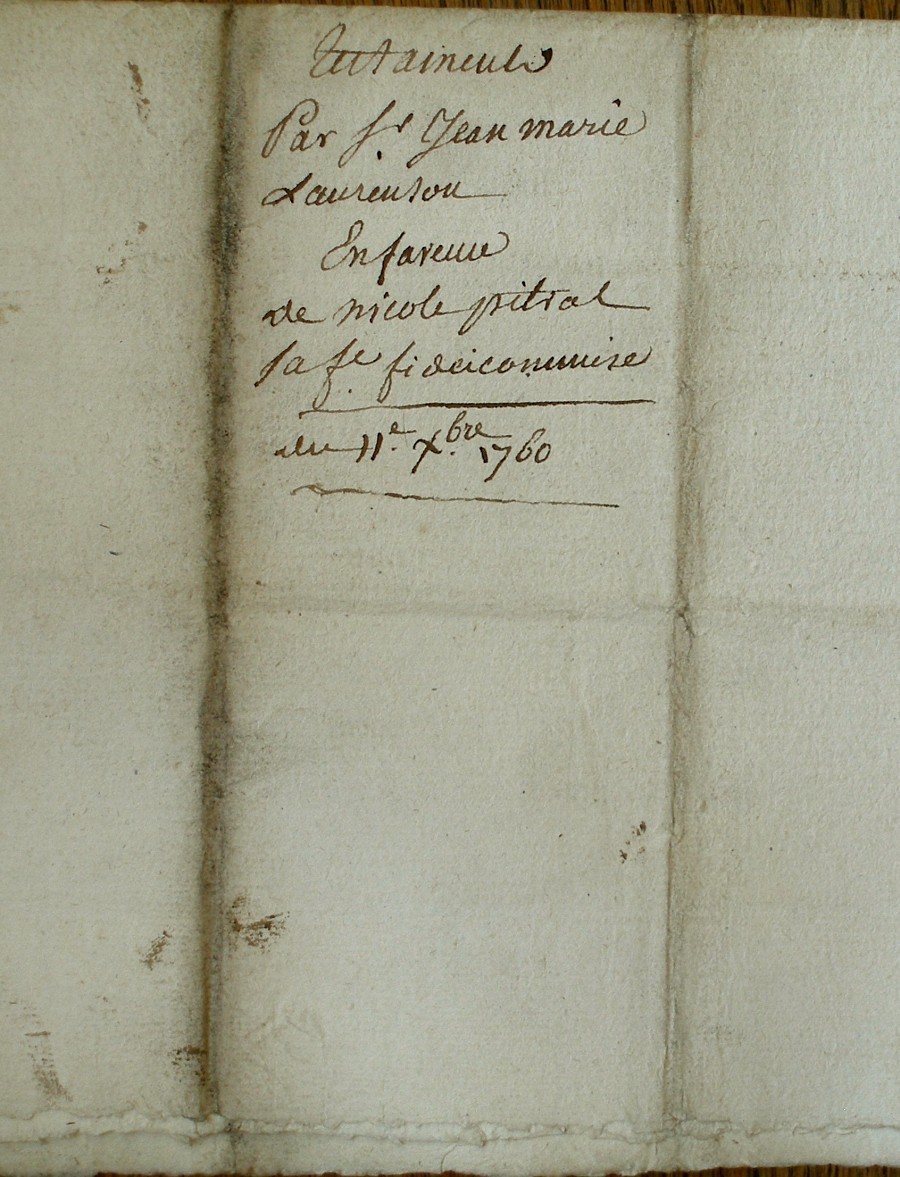 Testament
Par Sr. Jean marie
Laurenson
En faveur
de nicole pitrat
sa fe. fideicommise
du 11e. Xbre. 1760